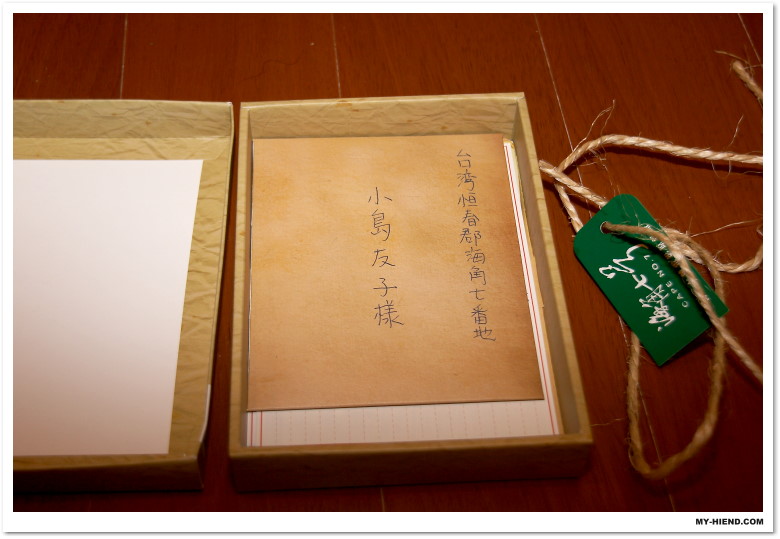 台湾恒春郡海角七番地
小島友子様
海角七号
CAPE NO.7
MY-HIEND.COM